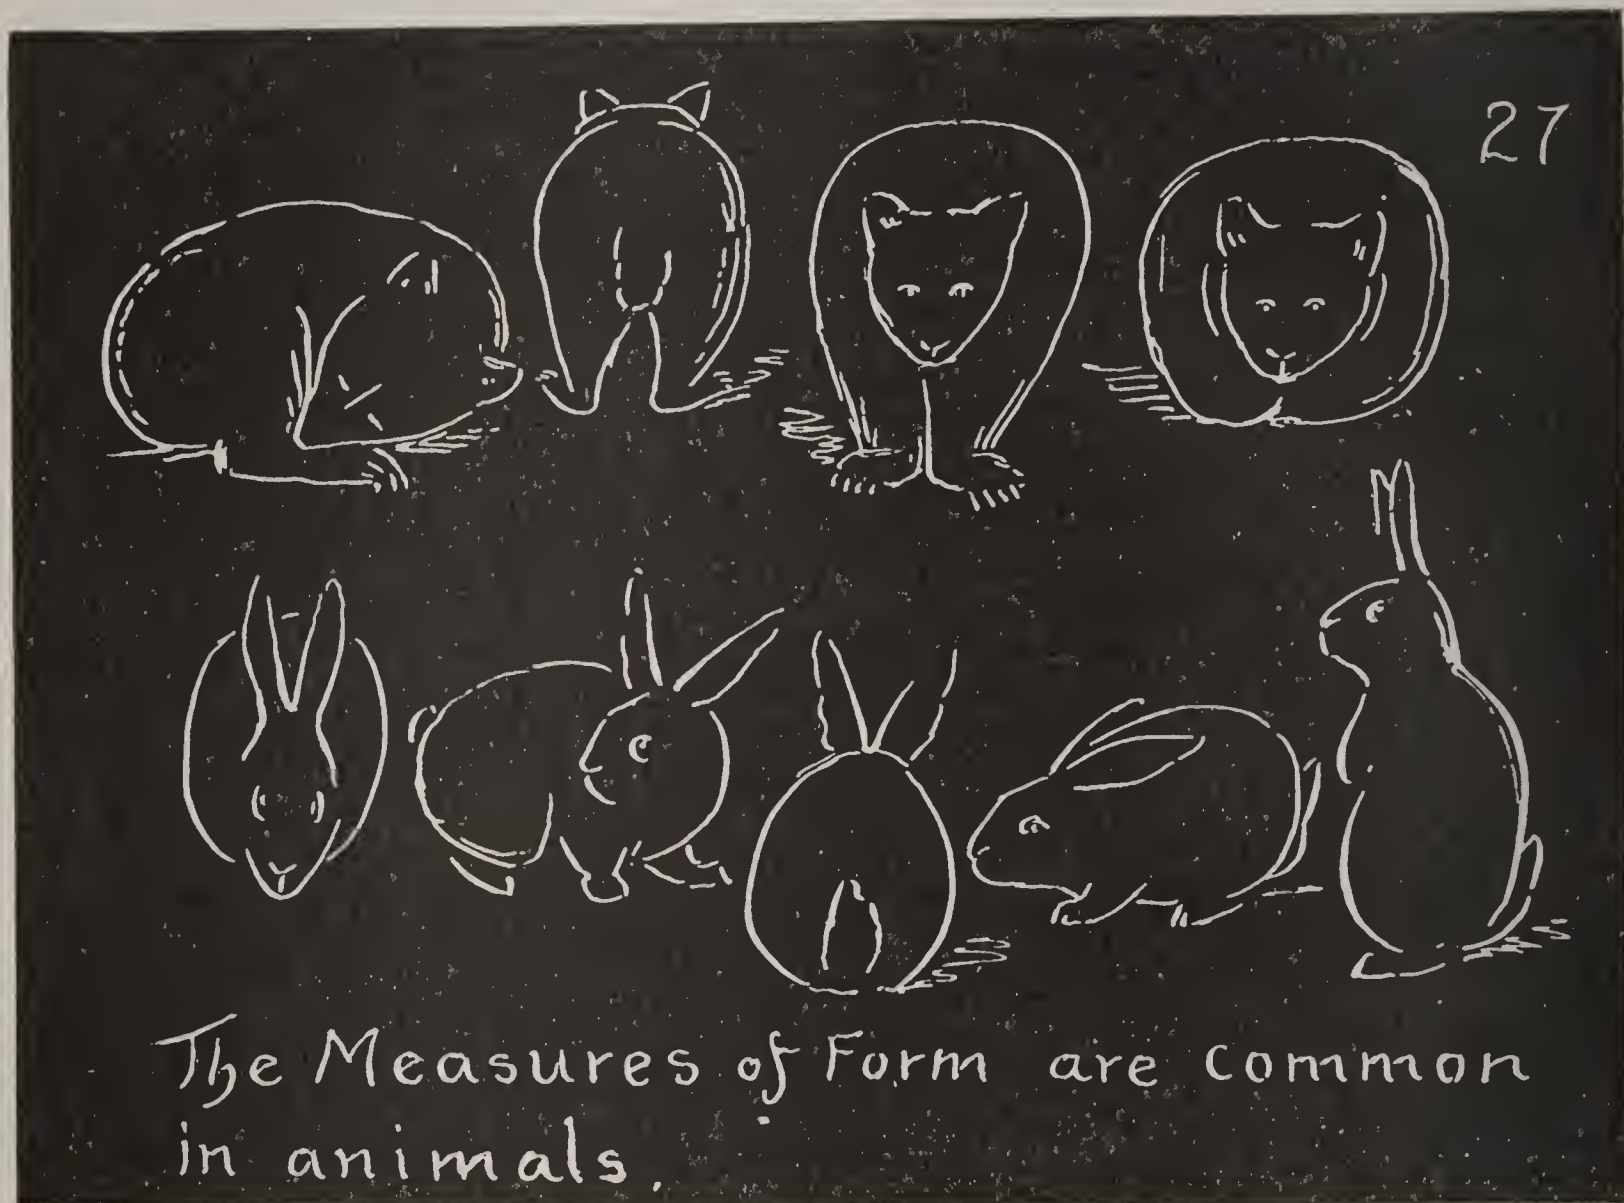 27
The Measures of Form are common
in animals.